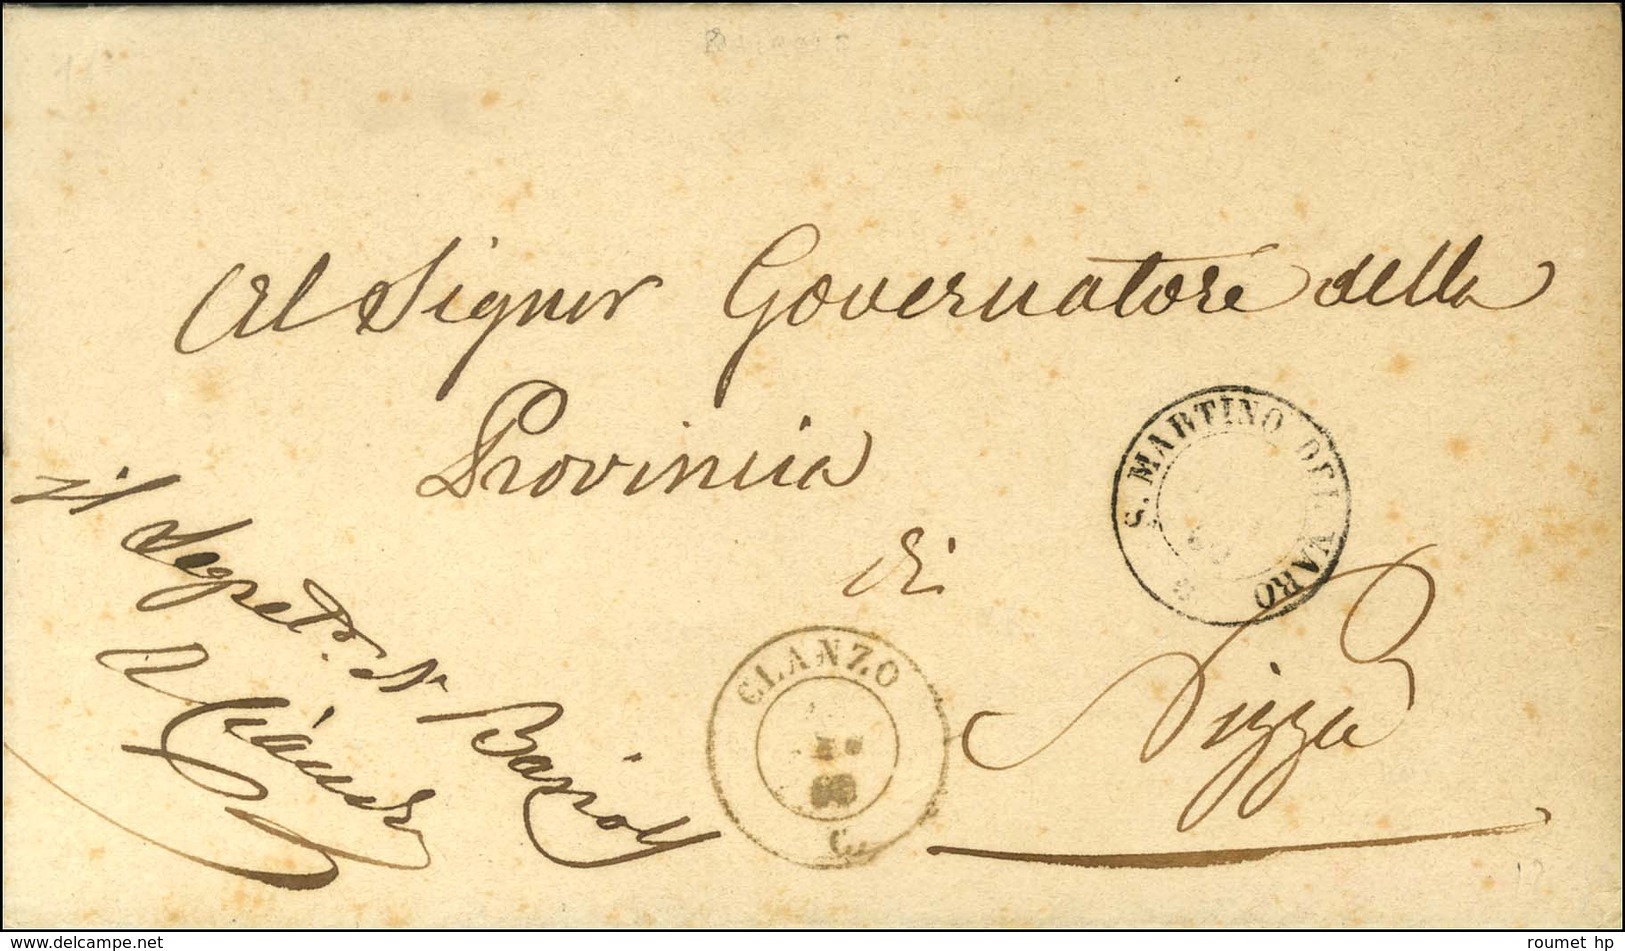 Al Signor Governatore della
Provincia
di
Nizza
il Segret.o
S. MARTINO DEL VARO
CLANZO
C.
www.delcampe.net
roumet hp